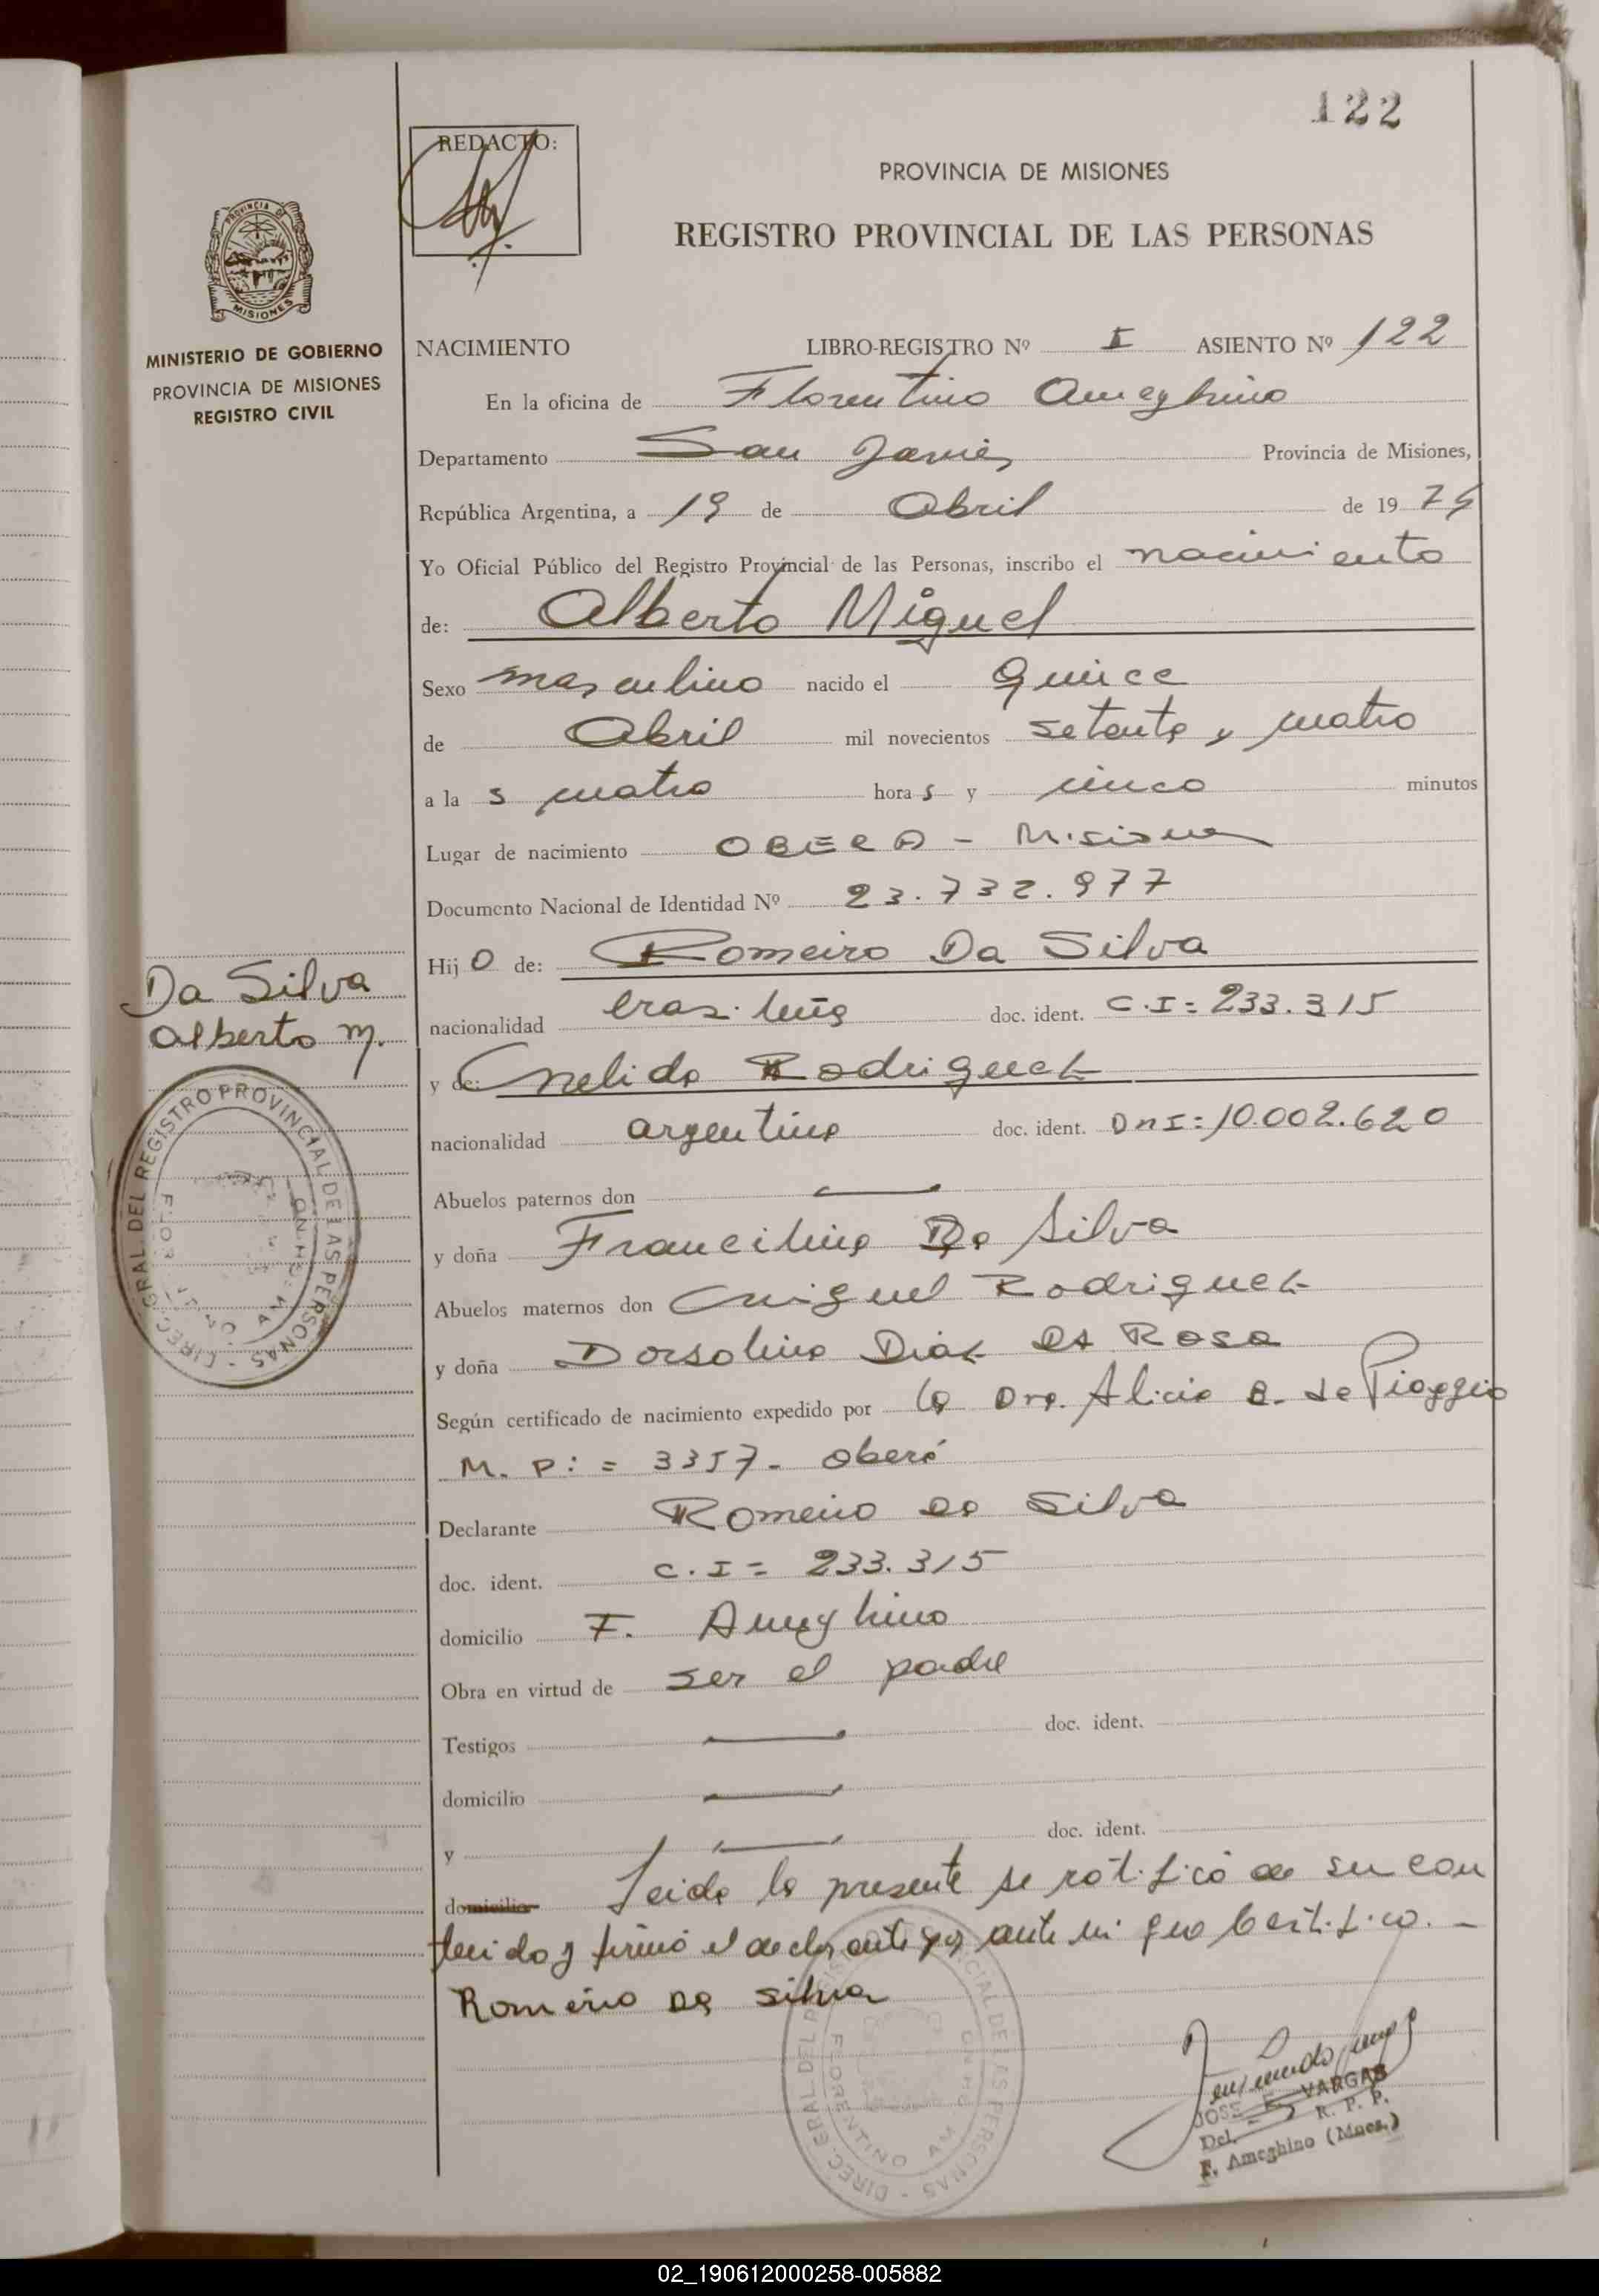 122
REDACTO:
PROVINCIA DE MISIONES
REGISTRO PROVINCIAL DE LAS PERSONAS
PROVINCIA DE
MISIONES
MINISTERIO DE GOBIERNO
PROVINCIA DE MISIONES
REGISTRO CIVIL
NACIMIENTO LIBRO-REGISTRO Nº I ASIENTO Nº 122
En la oficina de Florentino Ameghino
Departamento San Javier Provincia de Misiones,
República Argentina, a 19 de Abril de 1974
Yo Oficial Público del Registro Provincial de las Personas, inscribo el nacimiento
de: Alberto Miguel
Sexo masculino nacido el Quince
de Abril mil novecientos setenta y cuatro
a la s cuatro hora s y cinco minutos
Lugar de nacimiento OBERA - Misiones
Documento Nacional de Identidad Nº 23.732.977
Hij o de: Romeiro Da Silva
Da Silva
Alberto M.
nacionalidad brasileña doc. ident. C.I = 233.315
y de: Nelida Rodriguez
nacionalidad argentina doc. ident. DNI: 10.002.620
Abuelos paternos don —
y doña Francilina Da Silva
Abuelos maternos don Miguel Rodriguez
y doña Dorsolina Diaz Da Rosa
Según certificado de nacimiento expedido por la Dra. Alicia B. de Pioggio
M. P: = 3357 - Oberá
Declarante Romeiro Da Silva
doc. ident. C.I = 233.315
domicilio F. Ameghino
Obra en virtud de ser el padre
Testigos — doc. ident.
domicilio —
y — doc. ident.
domicilio Leida la presente se ratificó de su con
tenido y firmó el declarante por ante mi que Certifico. -
Romeiro Da Silva
DIREC. GRAL DEL REGISTRO PROVINCIAL DE LAS PERSONAS
FLORENTINO AMEGHINO
DIREC. GRAL DEL REGISTRO PROVINCIAL DE LAS PERSONAS
FLORENTINO AMEGHINO
JOSE E. VARGAS
Del. R. P. P.
F. Ameghino (Mnes.)
02_190612000258-005882